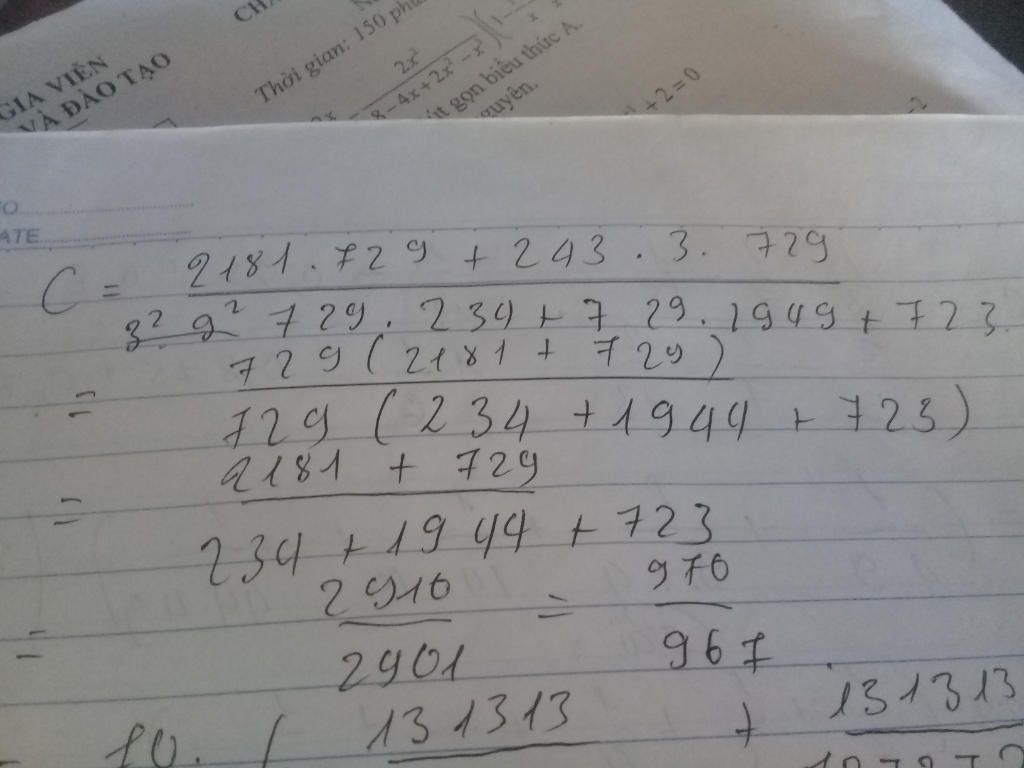 GIA VIỄN
VÀ ĐÀO TẠO
Thời gian: 150 phú
2x²
8-4x+2x²-x³
út gọn biểu thức A.
nguyên.
+2=0
C = 2181.729 + 243.3.729
3².9² 729.234 + 729.1949 + 723
= 729(2181 + 729)
729(234 + 1944 + 723)
= 2181 + 729
234 + 1944 + 723
= 2910 = 970
2901 967
10. ( 131313 + 131313